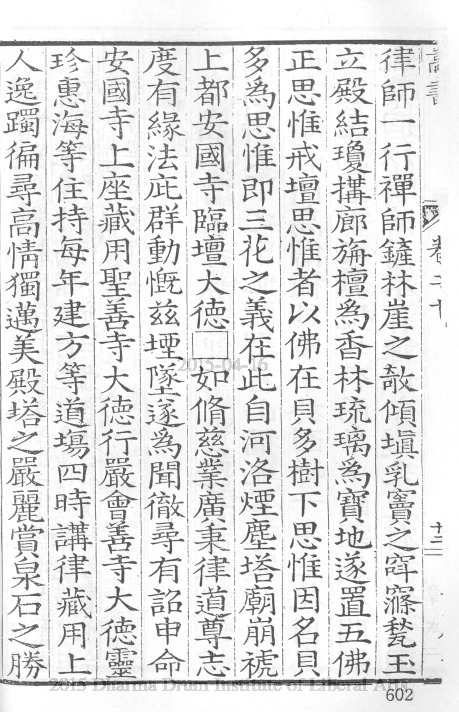 嵩書 卷二十 十二
律師一行禪師鏟林崖之欹傾塡乳竇之窂窱甃玉
立殿結瓊搆廊旃檀為香林琉璃為寶地遂置五佛
正思惟戒壇思惟者以佛在貝多樹下思惟因名貝
多為思惟即三花之義在此自河洛煙塵塔廟崩褫
上都安國寺臨壇大德□如脩慈業廣秉律道尊志
度有緣法庇群動慨茲堙墜遂為聞徹尋有詔申命
安國寺上座藏用聖善寺大德行嚴會善寺大德靈
珍惠海等住持每年建方等道場四時講律藏用上
人逸躅徧尋高情獨邁美殿塔之嚴麗賞泉石之勝
2015-04-16
2015 Dharma Drum Institute of Liberal Arts
602